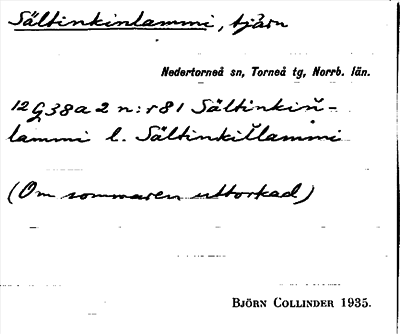 Sältinkinlammi, tjärn
Nedertorneå sn, Torneå tg, Norrb. län.
12 G 38 a 2 n:r 81 Sältinkin̆-
lammi l. Sältinkil̆lammi
(Om sommaren uttorkad)
BJÖRN COLLINDER 1935.